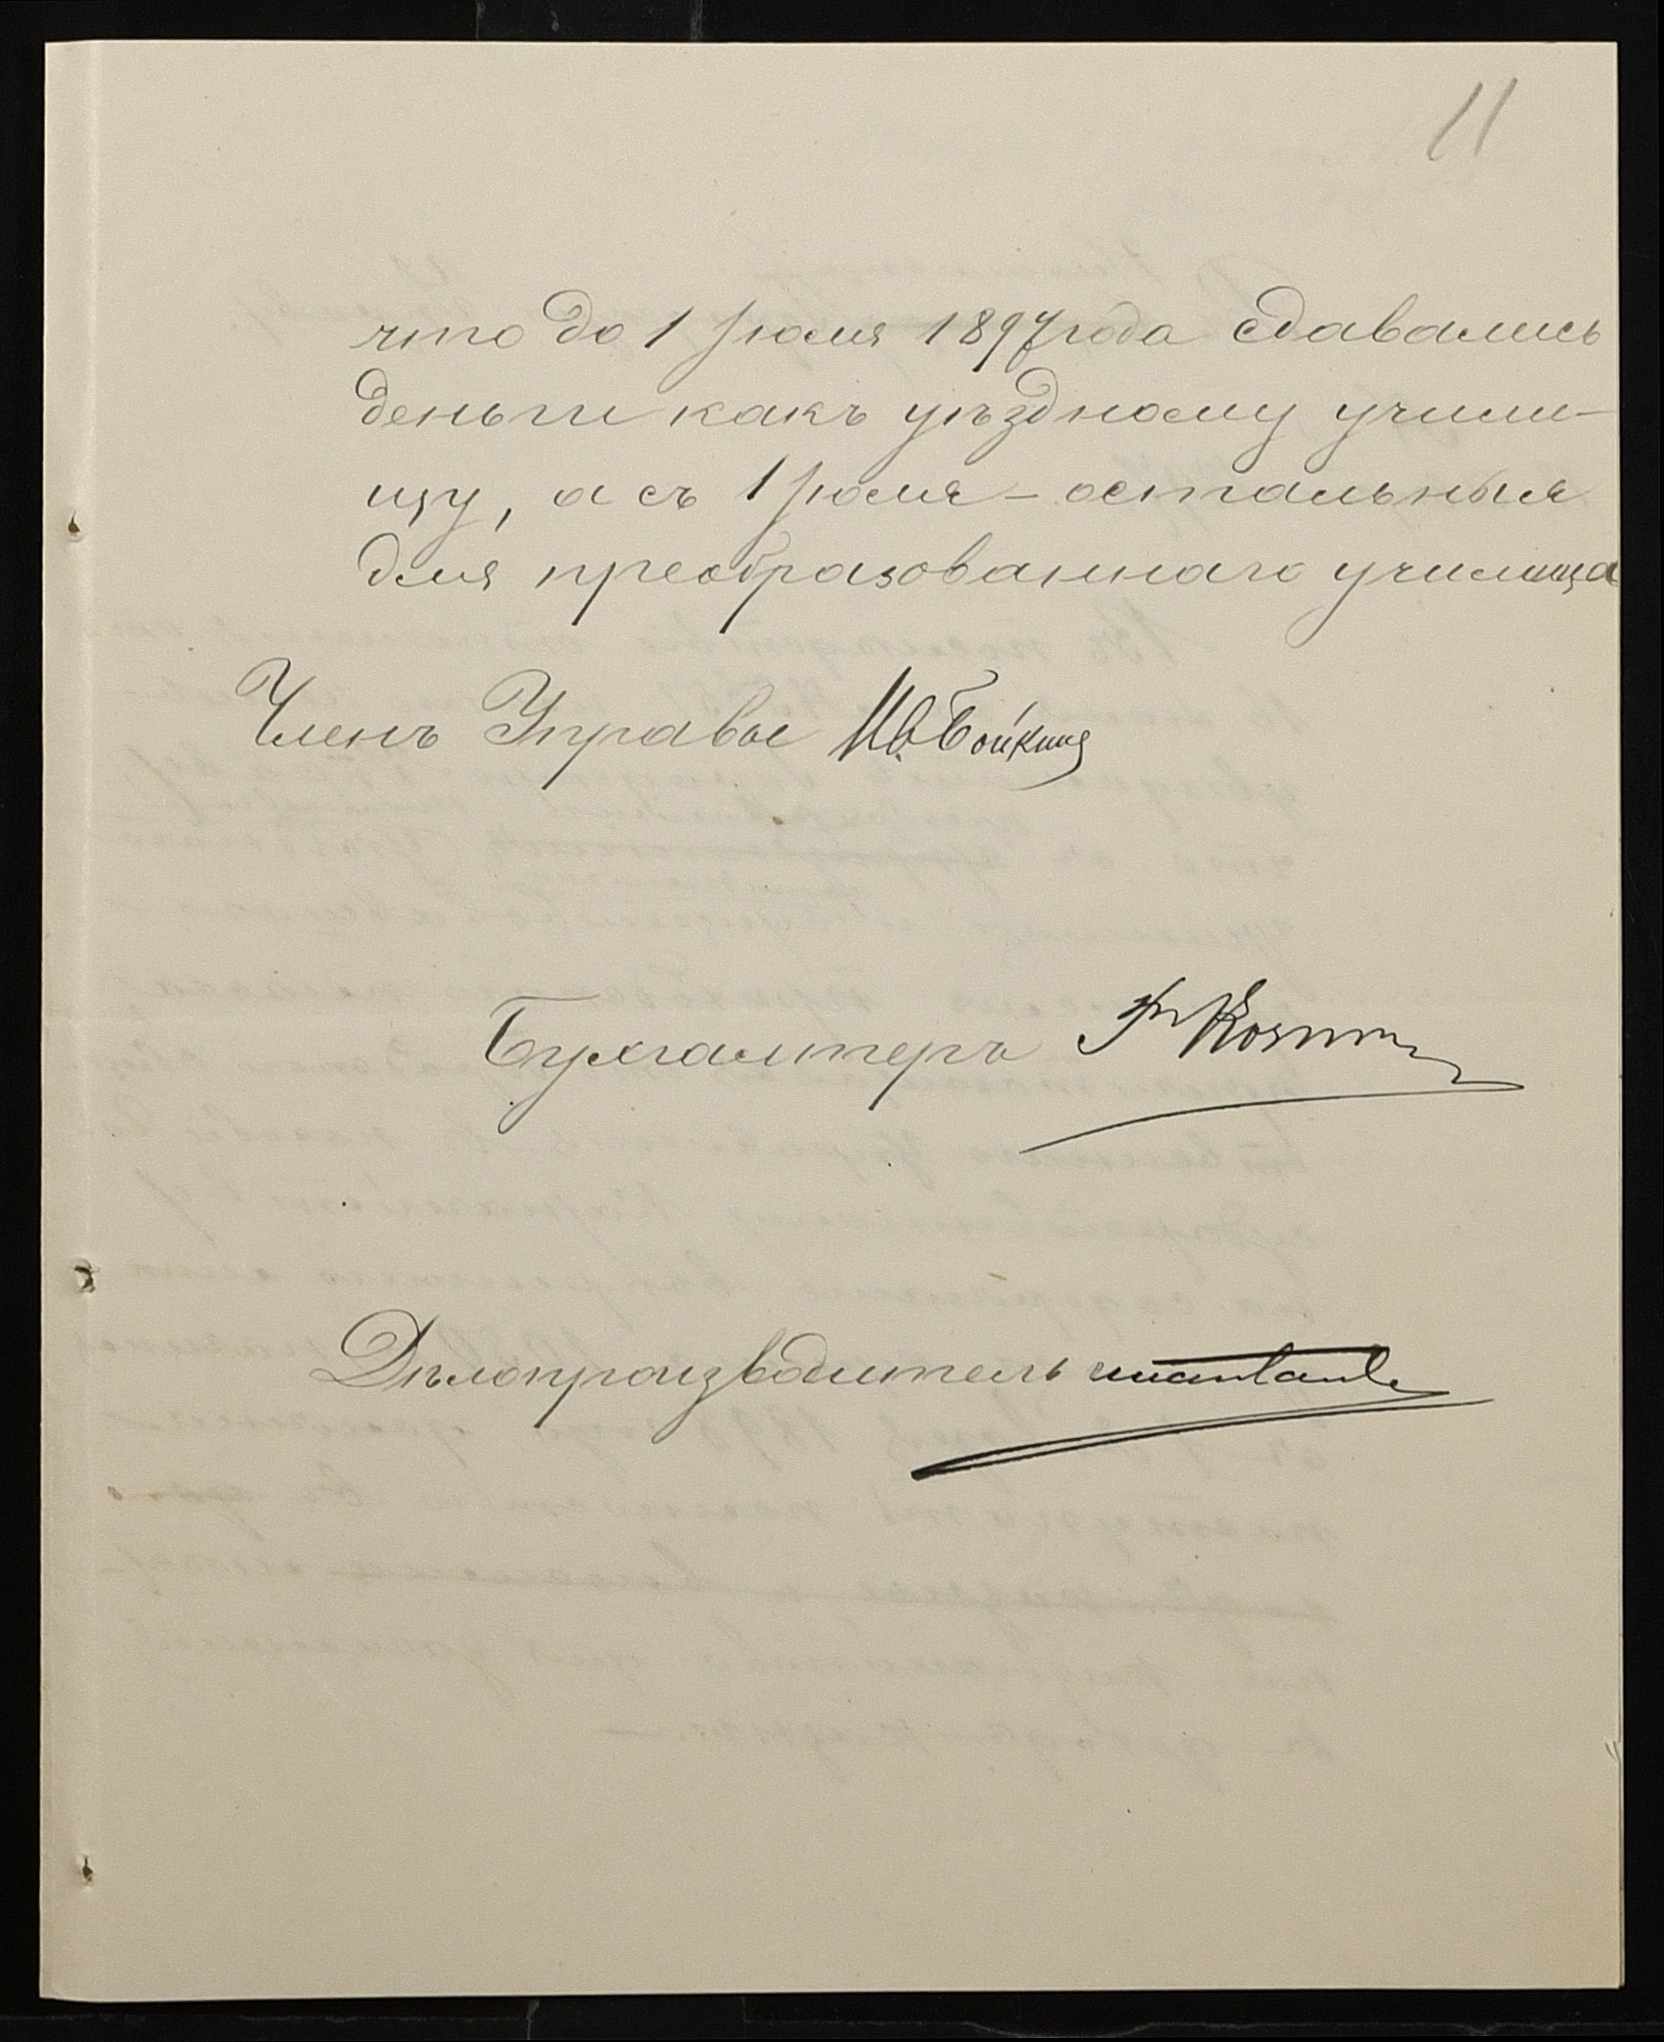 11
что до 1 Іюля 1897 года сдавались
деньги какъ уѣздному учили-
щу, а съ 1 Іюля – остальныя
для преобразованнаго училища
Членъ Управы Ив. Бойкинъ
Бухгалтеръ
Дѣлопроизводитель